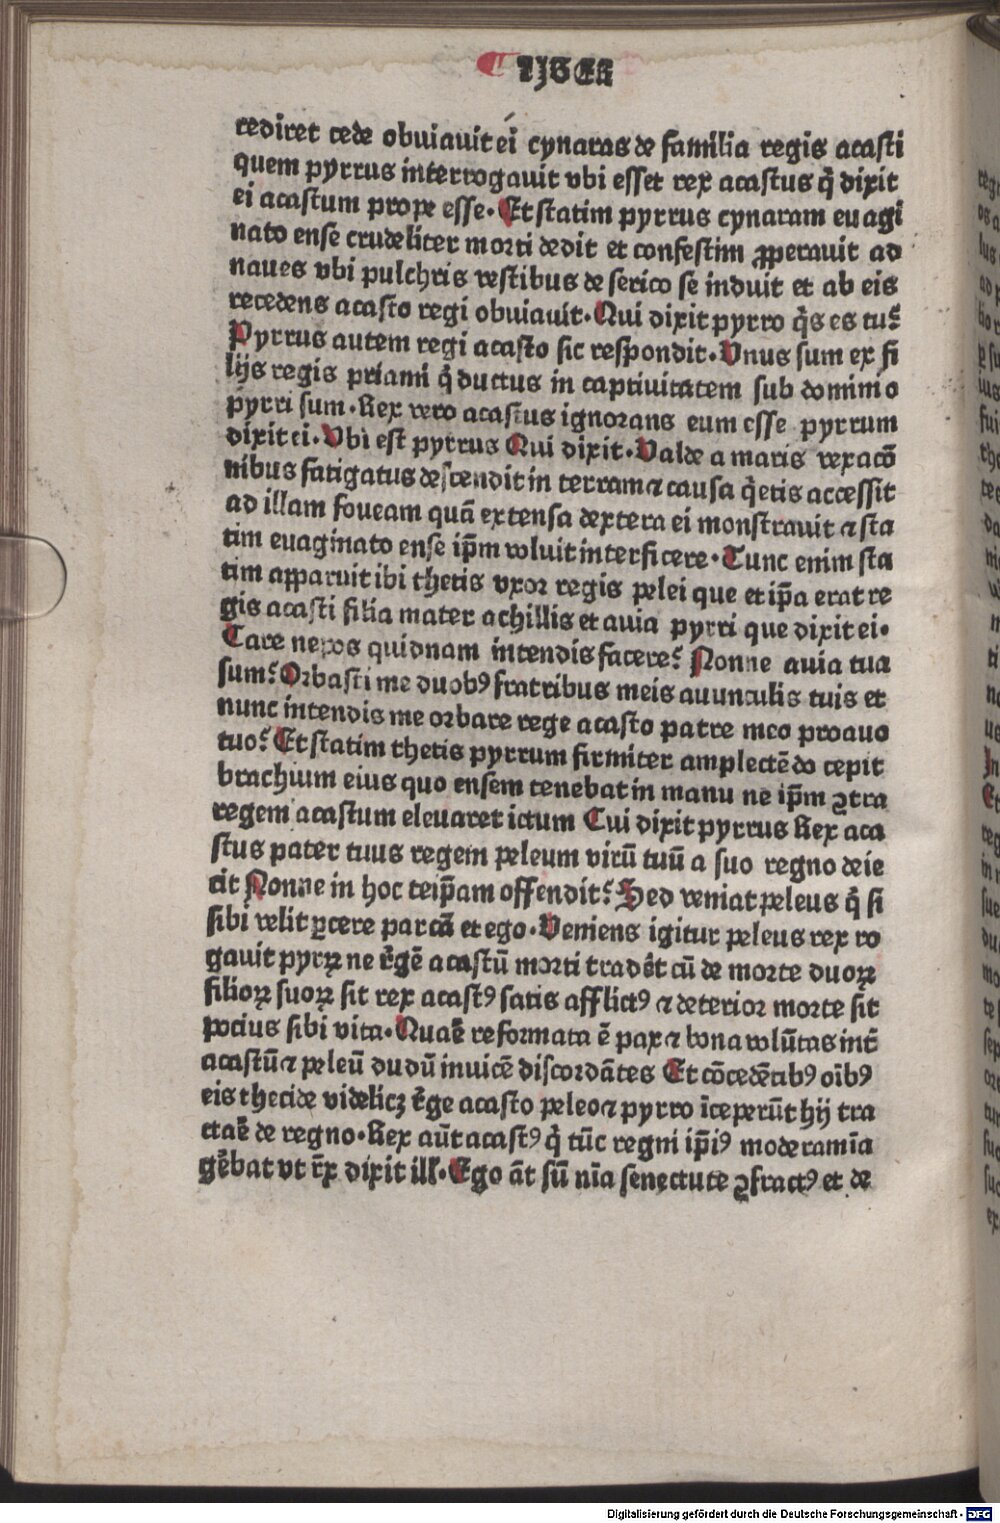 ¶ LIBER
rediret cede obuiauit ei cynaras de familia regis acasti
quem pyrrus interrogauit vbi esset rex acastus q̇ dixit
ei acastum prope esse. Et statim pyrrus cynaram euagi
nato ense crudeliter morti dedit et confestim ꝓperauit ad
naues vbi pulchris vestibus de serico se induit et ab eis
recedens acasto regi obuiauit. Qui dixit pyrro q̇s es tu?
Pyrrus autem regi acasto sic respondit. Vnus sum ex fi
lijs regis priami q̇ ductus in captiuitatem sub dominio
pyrri sum. Rex vero acastus ignorans eum esse pyrrum
dixit ei. Vbi est pyrrus Qui dixit. Valde a maris vexacō
nibus fatigatus descendit in terram ⁊ causa q̇etis accessit
ad illam foueam quā extensa dextera ei monstrauit ⁊ sta
tim euaginato ense ip̄m voluit interficere. Tunc enim sta
tim apparuit ibi thetis vxor regis pelei que et ip̄a erat re
gis acasti filia mater achillis et auia pyrri que dixit ei.
Care nepos quidnam intendis facere? Nonne auia tua
sum? Orbasti me duobꝰ fratribus meis auunculis tuis et
nunc intendis me orbare rege acasto patre meo proauo
tuo? Et statim thetis pyrrum firmiter amplectēdo cepit
brachium eius quo ensem tenebat in manu ne ip̄m ꝯtra
regem acastum eleuaret ictum Cui dixit pyrrus Rex aca
stus pater tuus regem peleum virū tuū a suo regno deie
cit Nonne in hoc teip̄am offendit? Sed veniat peleus q̇ si
sibi velit ꝑcere parcā et ego. Veniens igitur peleus rex ro
gauit pyrꝝ ne r̄gē acastū morti trad̄et cū de morte duoꝝ
filioꝝ suoꝝ sit rex acastꝰ satis afflictꝰ ⁊ deterior morte sit
pocius sibi vita. Quar̄ reformata ē pax ⁊ bona volūtas int̄
acastū ⁊ peleū dudū inuicē discordātes Et cōcedētibꝰ oībꝰ
eis thetide videlicꝫ r̄ge acasto peleo ⁊ pyrro īceperūt hij tra
ctar̄ de regno. Rex aūt acastꝰ q̇ tūc regni ip̄iꝰ moderamīa
gēbat vt r̄x dixit ill̄. Ego āt sū nīa senectute ꝯfractꝰ et de
Digitalisierung gefördert durch die Deutsche Forschungsgemeinschaft - DFG